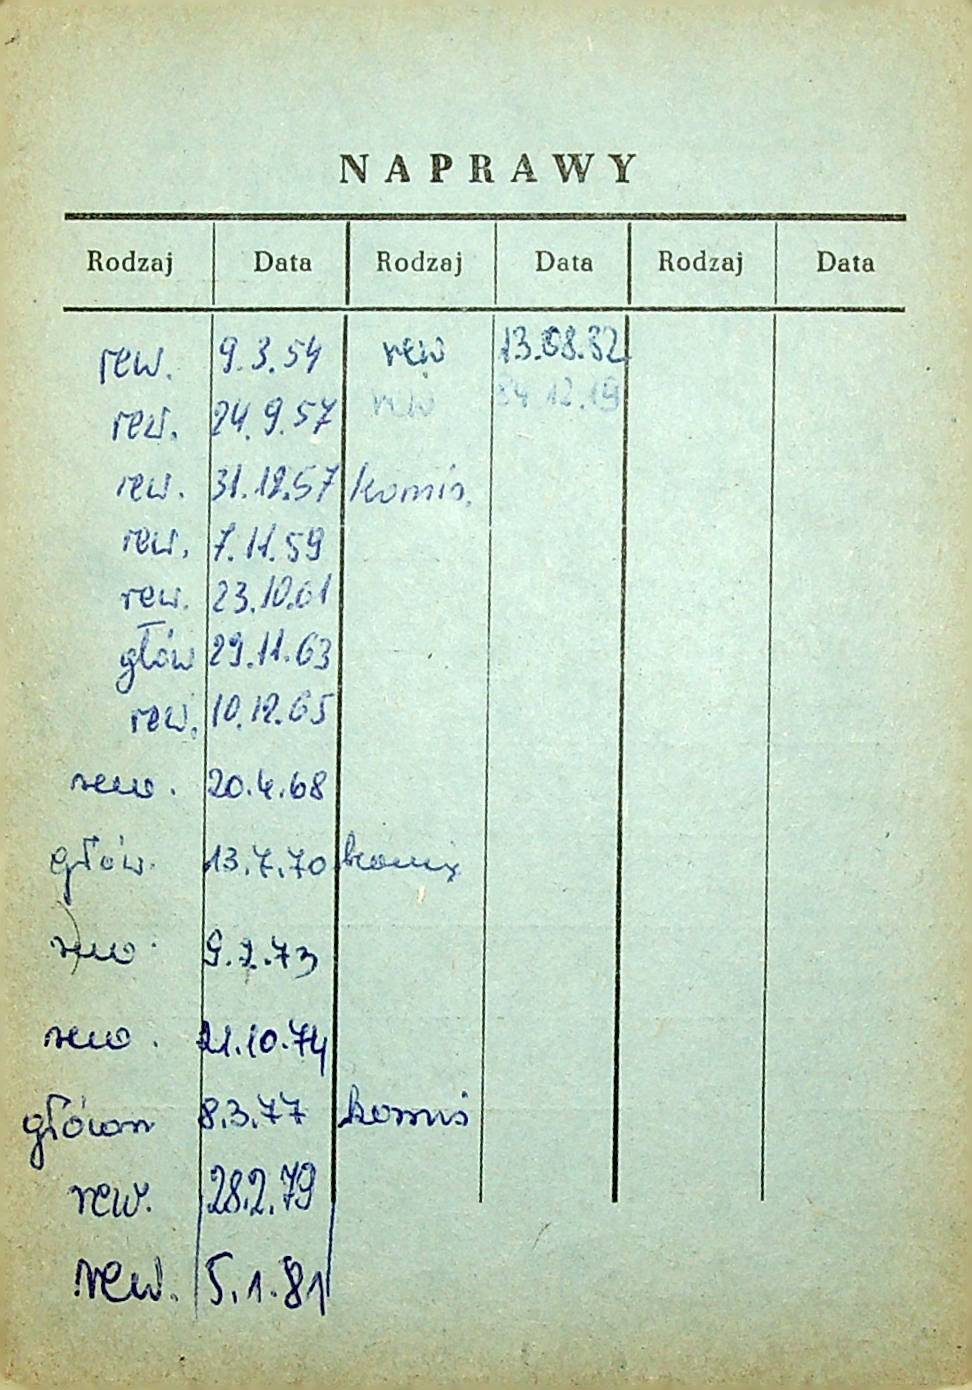 NAPRAWY
Rodzaj Data Rodzaj Data Rodzaj Data
rew. 9.3.54 rew 13.08.82
rew. 24.9.57 rew 84.12.19
rew. 31.12.57 komis.
rew. 7.11.59
rew. 23.10.61
głów 29.11.63
rew. 10.12.65
rew. 20.4.68
głów. 13.7.70 komis
rew. 9.2.73
rew. 21.10.74
główn 8.3.77 komis
rew. 28.2.79
rew. 5.1.81